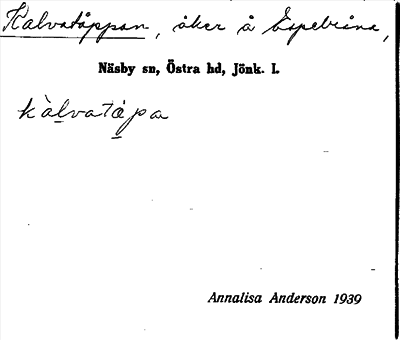 Kalvatåppan, åker å Espebråna,
Näsby sn, Östra hd, Jönk. l.
kàlvatåpa
Annalisa Anderson 1939